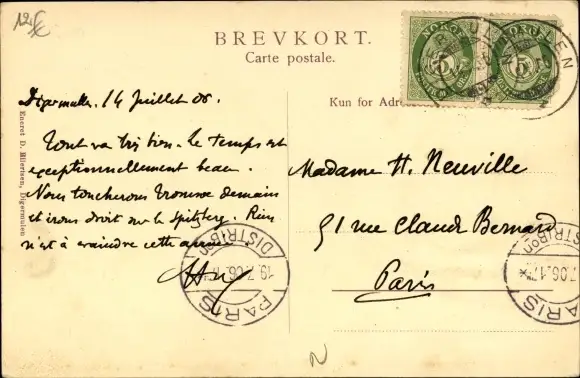 12.-
BREVKORT.
Carte postale.
NORGE
5
NORGE
5
DIGERMULEN
Kun for Adre
Eneret D. Mlertsen, Digermulen
Digermulen. 14 Juillet 06.
Tout va très bien. Le temps est
exceptionnellement beau.
Nous toucherons Tromsoe demain
et irons droit sur le Spitzberg. Rien
n'est à craindre cette année
Madame H. Neuville
51 rue Claude Bernard
Paris
PARIS
19.7.06
DISTRIBON
PARIS
7.06.17
DISTRIBON